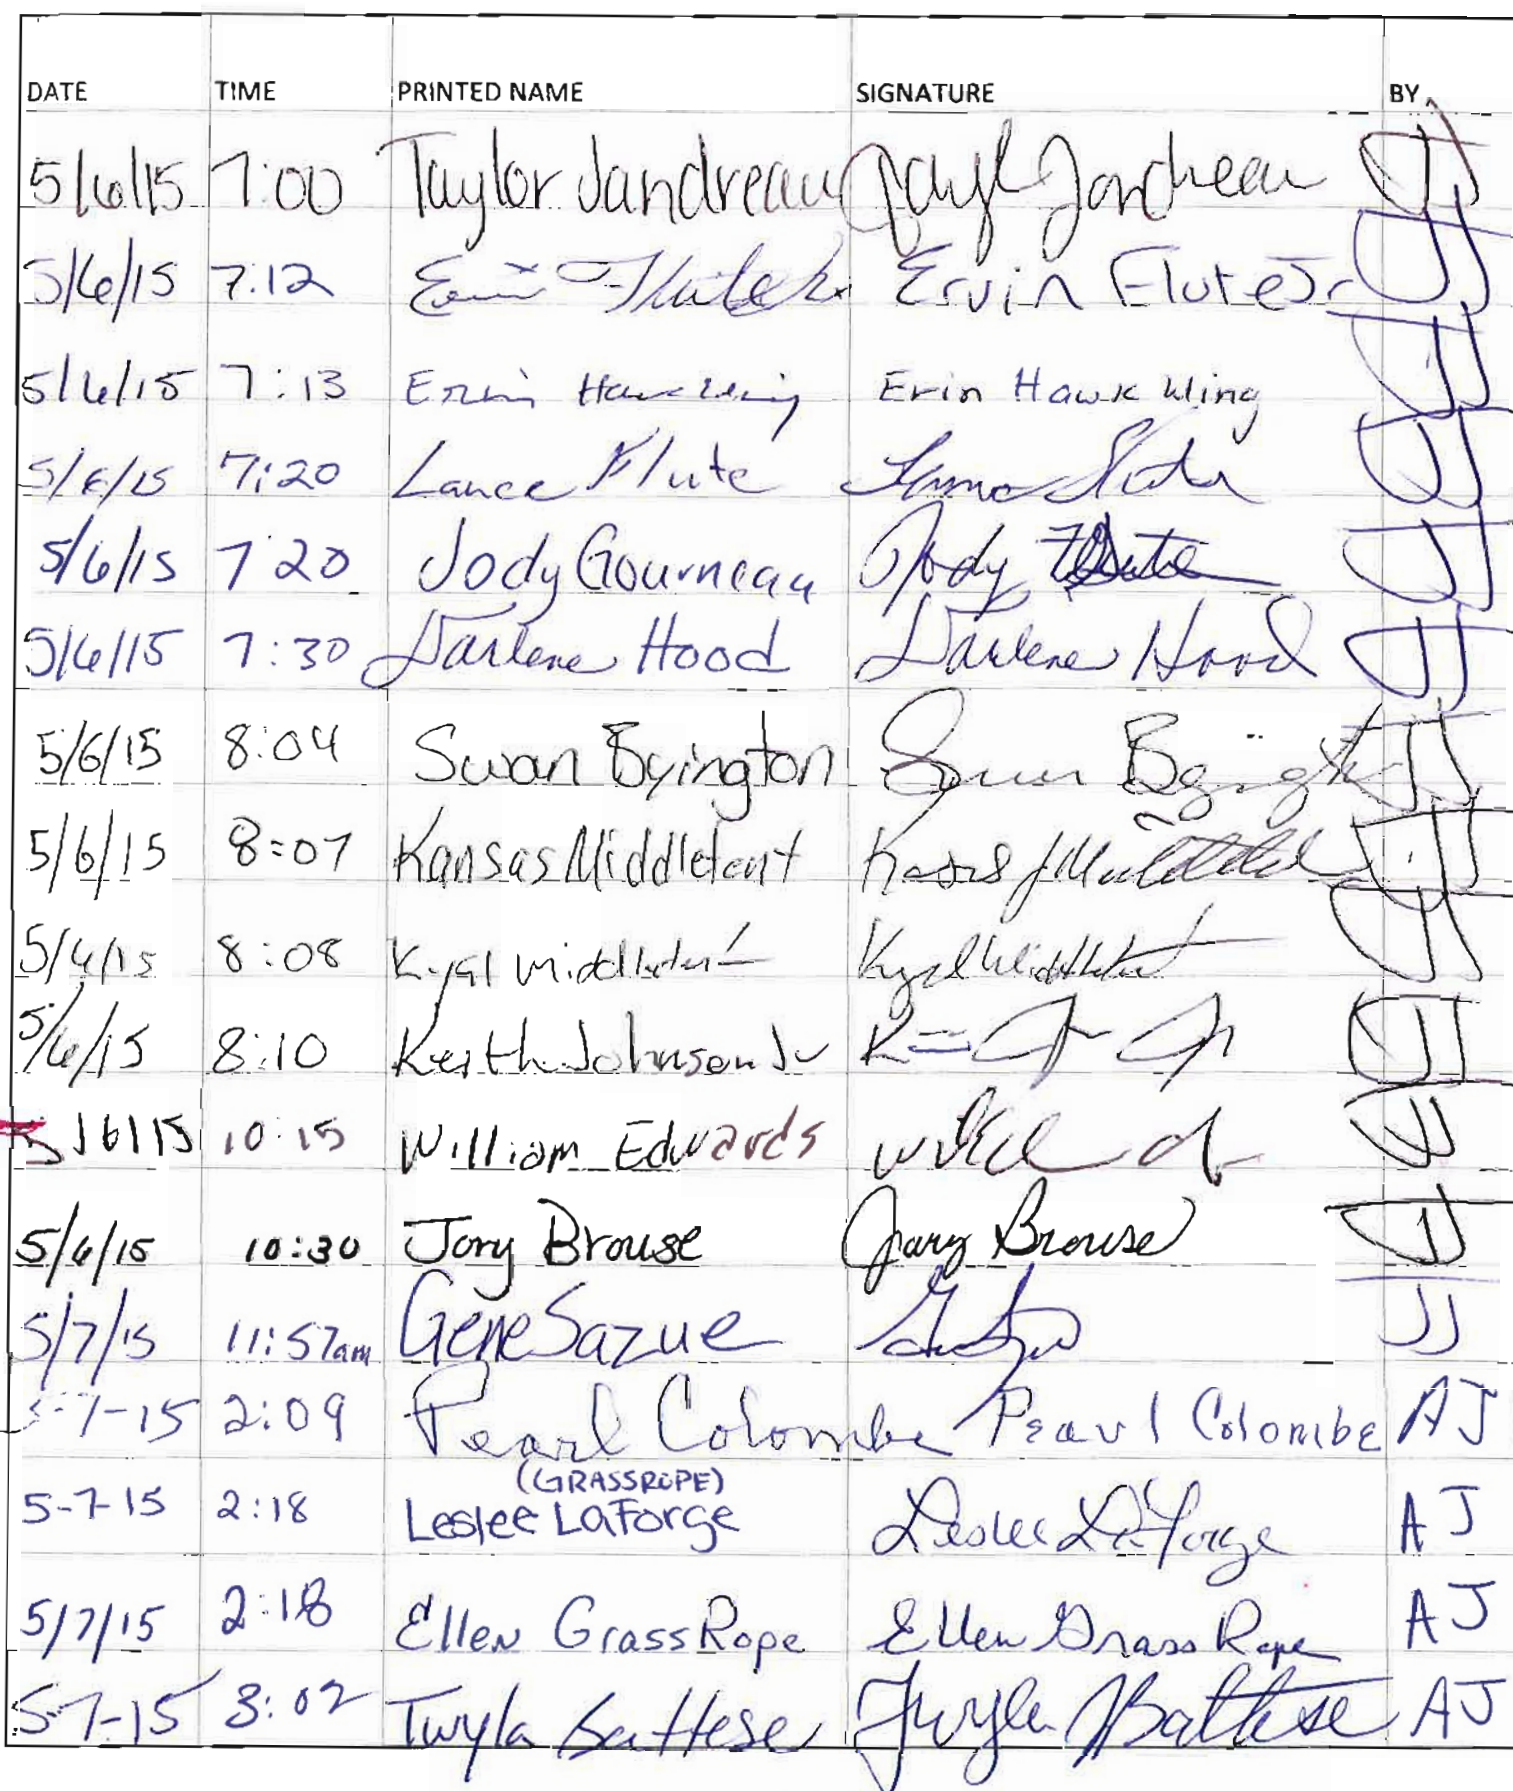 DATE TIME PRINTED NAME SIGNATURE BY
5/6/15 7:00 Taylor Jandreau Tayl Jandreau JJ
5/6/15 7:12 Ervin Flute Jr. Ervin Flute Jr JJ
5/6/15 7:13 Erin Hawk Wing Erin Hawk Wing JJ
5/6/15 7:20 Lance Flute Lance Flute JJ
5/6/15 7:20 Jody Gourneau Jody JJ
5/6/15 7:30 Darlene Hood Darlene Hood JJ
5/6/15 8:04 Swan Byington Swan Byington JJ
5/6/15 8:07 Kansas Middletent JJ
5/6/15 8:08 Kyal Middletent Kyal Middletent JJ
5/6/15 8:10 Keith Johnson Jr JJ
5/6/15 10:15 William Edwards JJ
5/6/15 10:30 Jory Brouse Jory Brouse JJ
5/7/15 11:57am Gene Sazue JJ
5-7-15 2:09 Pearl Colombe Pearl Colombe AJ
(GRASSROPE)
5-7-15 2:18 Leslee LaForge Leslee LaForge AJ
5/7/15 2:18 Ellen GrassRope Ellen Grass Rope AJ
5-7-15 3:02 Twyla Battese Twyla Battese AJ